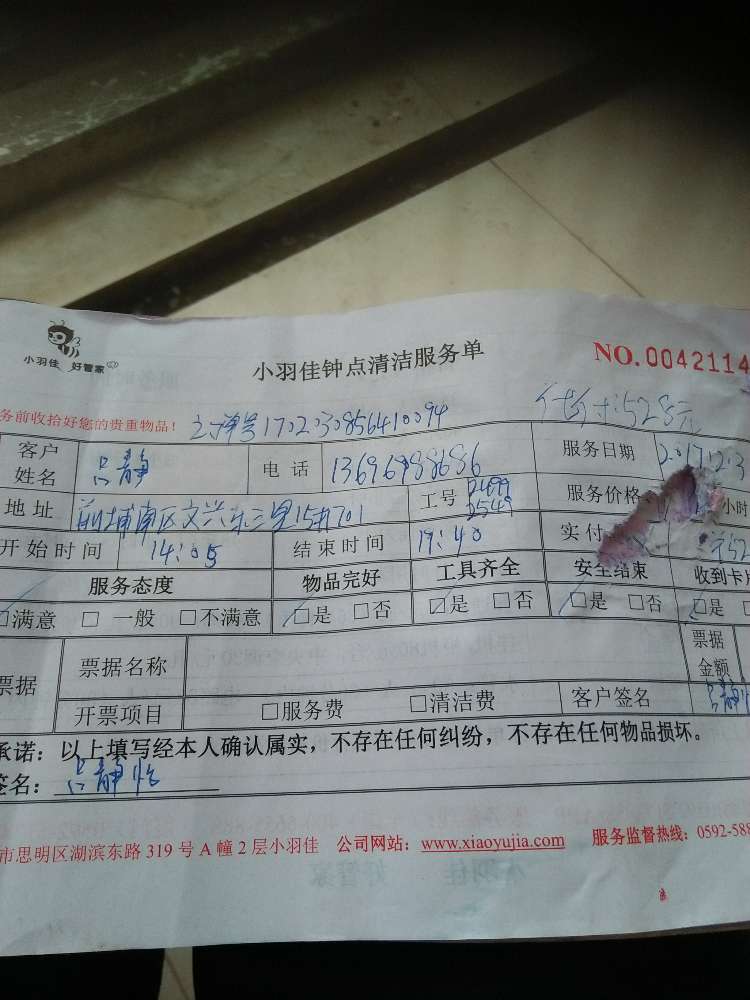 小羽佳 好管家
小羽佳钟点清洁服务单
NO.0042114
务前收拾好您的贵重物品！ 1702030856410094 528元
客户姓名 吕静 电话 服务日期 2017.12.3
地址 前埔南区文兴东三里 701 工号 2499 2549 服务价格 小时
开始时间 14:05 结束时间 17:40 实付
服务态度 物品完好 工具齐全 安全结束 收到卡片
□满意 □一般 □不满意 □是 □否 ☑是 □否 □是 □否 □是
票据 票据名称 票据金额
开票项目 □服务费 □清洁费 客户签名 吕静怡
承诺：以上填写经本人确认属实，不存在任何纠纷，不存在任何物品损坏。
签名：吕静怡
市思明区湖滨东路 319 号 A 幢 2 层小羽佳 公司网站：www.xiaoyujia.com 服务监督热线：0592-588